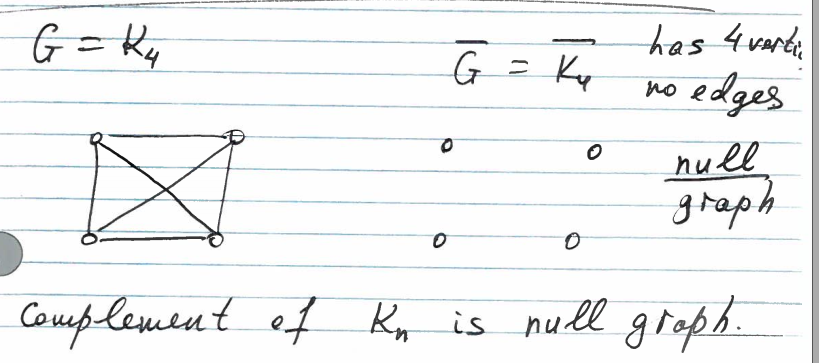 G = K₄
G̅ = K̅₄ has 4 verti
no edges
null
graph
Complement of Kₙ is null graph.